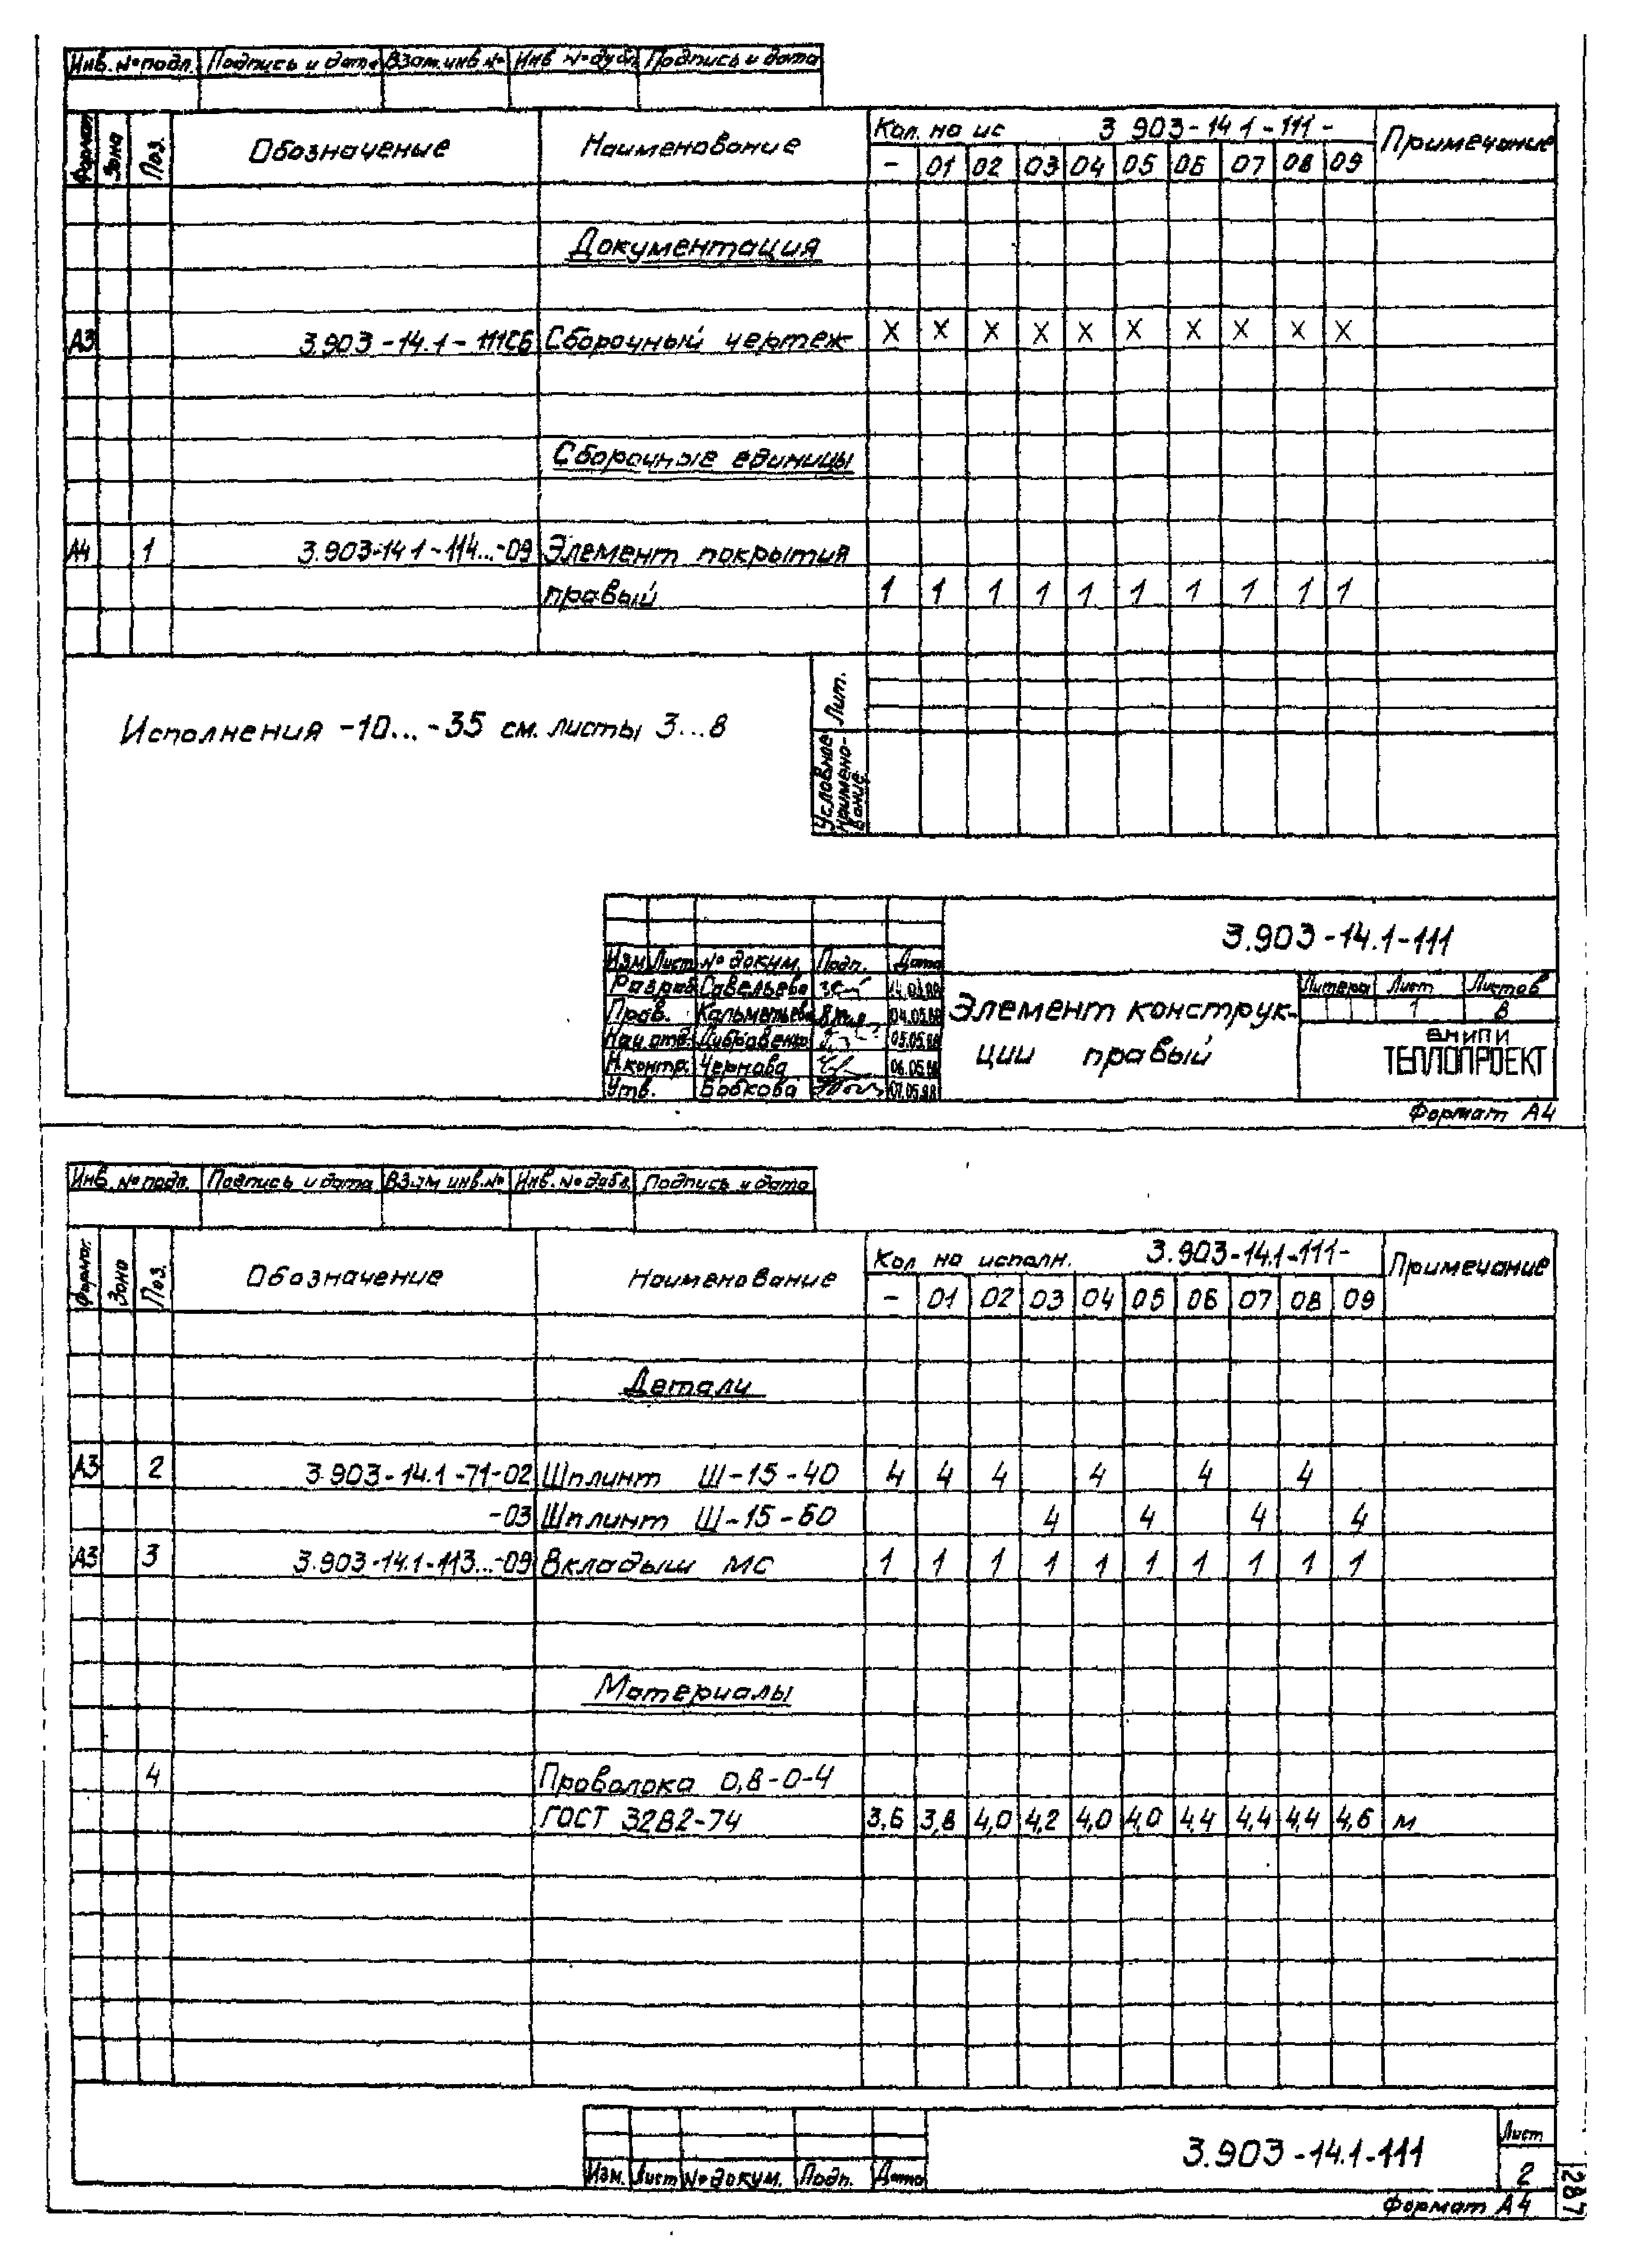 Инв. № подл. Подпись и дата Взам. инв № Инв № дубл. Подпись и дата
Формат Зона Поз. Обозначение Наименование Кол. на ис 3 903-14 1-111- Примечание
- 01 02 03 04 05 06 07 08 09
Документация
А3 3.903-14.1-111СБ Сборочный чертеж X X X X X X X X X X
Сборочные единицы
А4 1 3.903-14 1-114...-09 Элемент покрытия
правый 1 1 1 1 1 1 1 1 1 1
Лит.
Исполнения -10...-35 см. листы 3...8
Условное
наимено-
вание
3.903-14.1-111
Изм Лист № докум. Подп. Дата
Разраб Савельева
Элемент конструк-
ции правый
Литера Лист Листов
1 8
Пров. 04.05.88
Нач. отд. 05.05.88
Н.контр. Чернова 06.05.88
Утв. Бобкова 07.05.88
ВНИПИ
ТЕПЛОПРОЕКТ
Формат А4
Инв. № подл. Подпись и дата Взам инв. № Инв. № дубл. Подпись и дата
Формат Зона Поз. Обозначение Наименование Кол на исполн. 3.903-14.1-111- Примечание
- 01 02 03 04 05 06 07 08 09
Детали
А3 2 3.903-14.1-71-02 Шплинт Ш-15-40 4 4 4 4 4 4
-03 Шплинт Ш-15-60 4 4 4 4
А3 3 3.903-14.1-113...-09 Вкладыш МС 1 1 1 1 1 1 1 1 1 1
Материалы
4 Проволока 0,8-0-4
ГОСТ 3282-74 3,6 3,8 4,0 4,2 4,0 4,0 4,4 4,4 4,4 4,6 м
3.903-14.1-111
Лист
2
Изм. Лист № докум. Подп. Дата
Формат А4
287